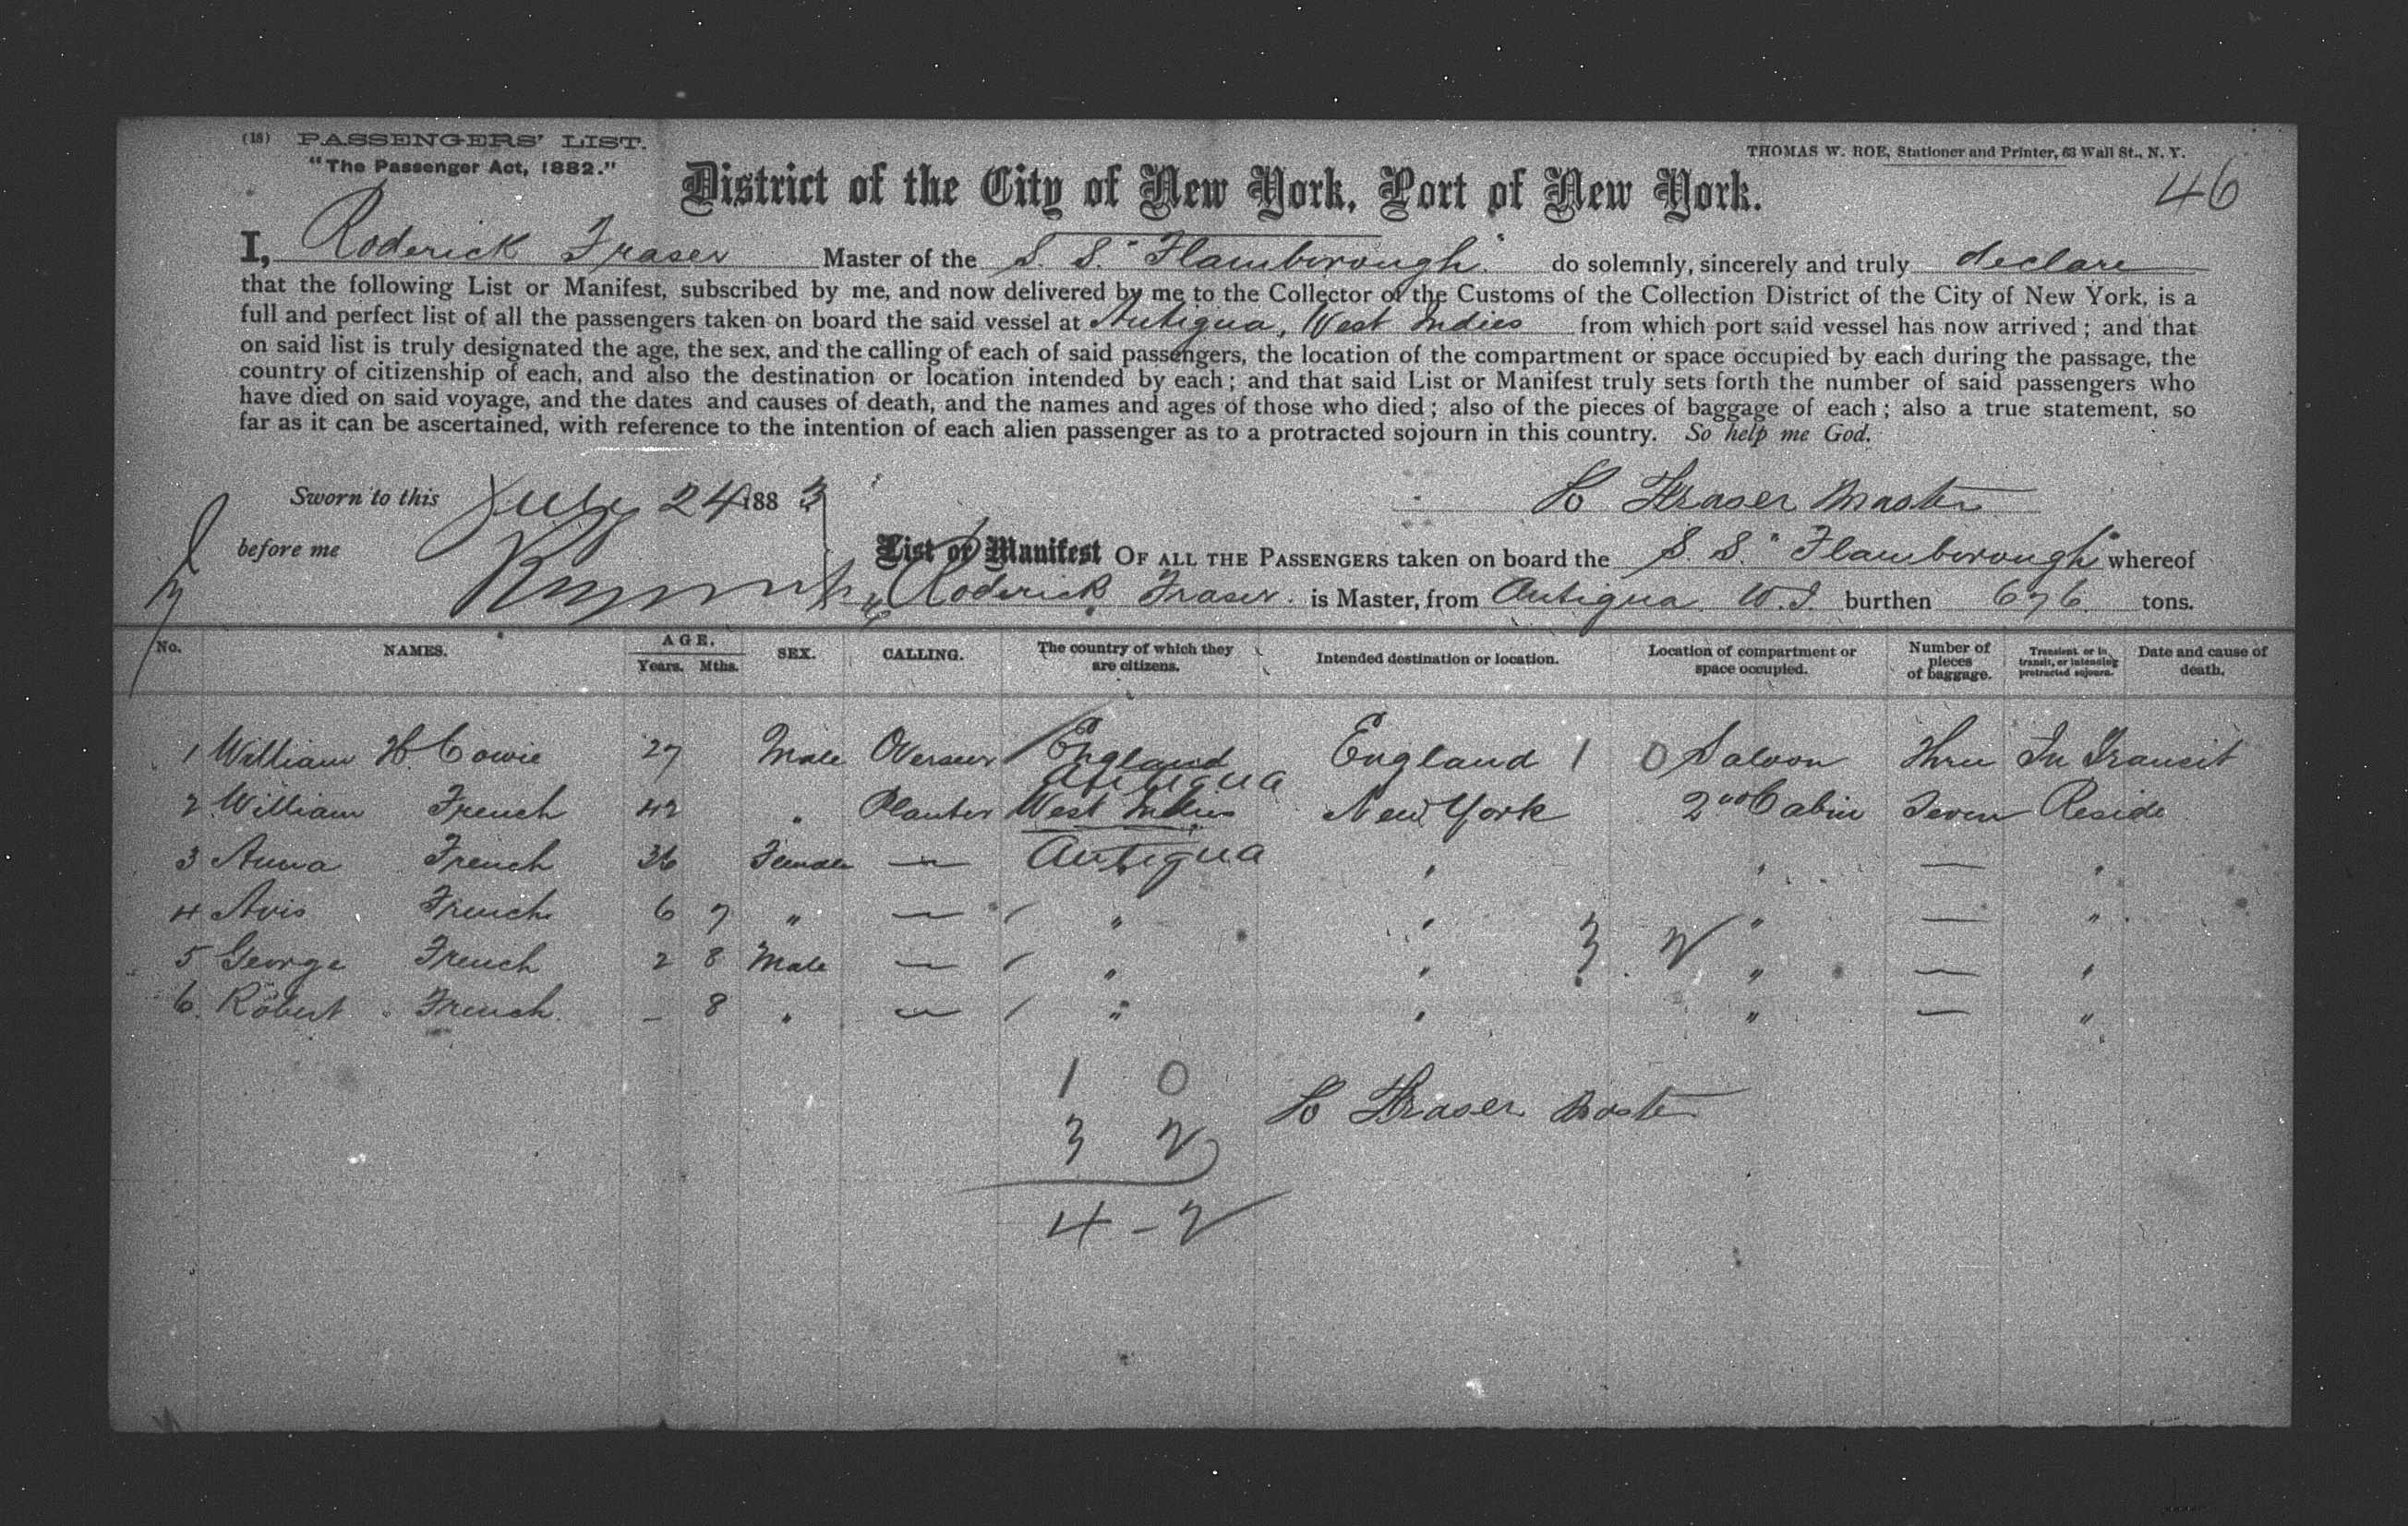 (18) PASSENGERS' LIST.
"The Passenger Act, 1882."
THOMAS W. ROE, Stationer and Printer, 63 Wall St., N. Y.
46
District of the City of New York, Port of New York.
I, Roderick Fraser Master of the S. S. "Flamborough" do solemnly, sincerely and truly declare
that the following List or Manifest, subscribed by me, and now delivered by me to the Collector of the Customs of the Collection District of the City of New York, is a
full and perfect list of all the passengers taken on board the said vessel at Antigua, West Indies from which port said vessel has now arrived; and that
on said list is truly designated the age, the sex, and the calling of each of said passengers, the location of the compartment or space occupied by each during the passage, the
country of citizenship of each, and also the destination or location intended by each; and that said List or Manifest truly sets forth the number of said passengers who
have died on said voyage, and the dates and causes of death, and the names and ages of those who died; also of the pieces of baggage of each; also a true statement, so
far as it can be ascertained, with reference to the intention of each alien passenger as to a protracted sojourn in this country. So help me God.
Sworn to this July 24 1883
Fraser Master
before me
List or Manifest OF ALL THE PASSENGERS taken on board the S. S. "Flamborough" whereof
Roderick Fraser is Master, from Antigua W. I. burthen 676 tons.
No. NAMES. AGE. Years. Mths. SEX. CALLING. The country of which they are citizens. Intended destination or location. Location of compartment or space occupied. Number of pieces of baggage. Transient, or in transit, or intending protracted sojourn. Date and cause of death.
1 William H. Cowie 27 Male Overseer England England 1 0 Saloon Three In Transit
Antigua
2 William French 42 " Planter West Indies New York 2nd Cabin Seven Reside
3 Anna French 36 Female — Antigua " " — "
4 Avis French 6 7 " — " " " — "
5 George French 2 8 Male — " " 3 2 " — "
6. Robert French. – 8 " — " " " — "
1 0
3 2
Fraser Master
4 - 2